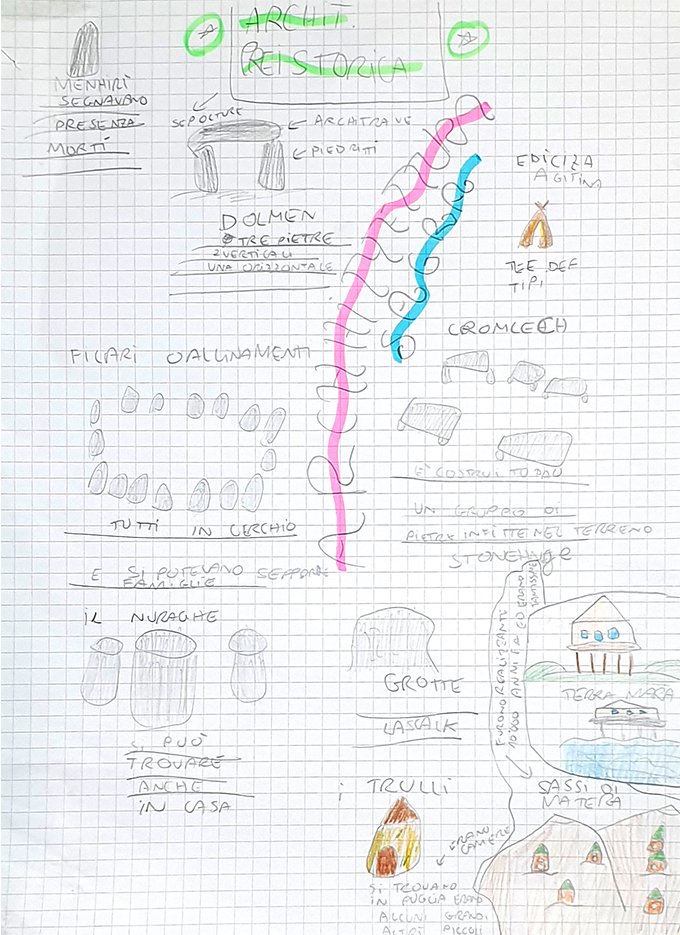 ARCHIT.
PREISTORICA
MENHIRI
SEGNAVANO
PRESENZA
MORTI
SEPOLTURE
ARCHITRAVE
PIEDRITI
DOLMEN
TRE PIETRE
2 VERTICALI
UNA ORIZZONTALE
TIPI
CROMLECH
FILARI O ALLINAMENTI
TUTTI IN CERCHIO
E SI POTEVANO
FAMIGLIE
E' COSTRUITO DAU
UN GRUPPO DI
PIETRE INFITTE NEL TERRENO
STONEHENGE
IL NURAGHE
SI PUÒ
TROVARE
ANCHE
IN CASA
GROTTE
FURONO REALIZZANTE
10'000 ANNI FA
TERRA MARA
SASSI DI
MATERA
i TRULLI
ERANO
CAMERE
SI TROVANO
IN PUGLIA ERANO
ALCUNI GRANDI
ALTRI PICCOLI